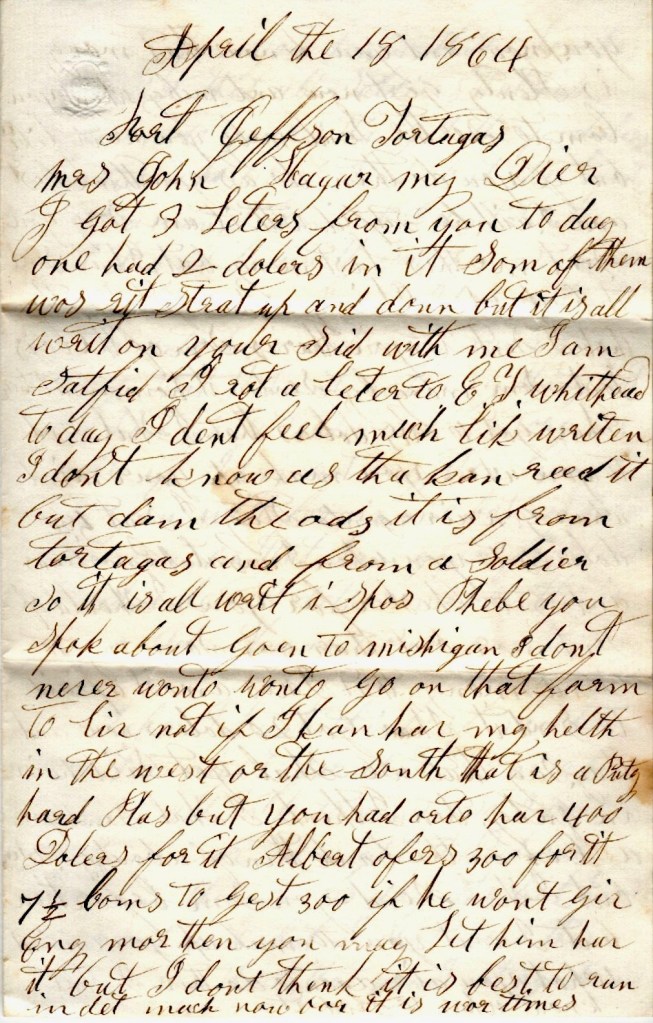 April the 18 1864
Fort Jeffson Tortugas
mrs John Hagar my Dier
I got 3 Leters from you to day
one had 2 dolers in it Som of them
wos strat up and doun but it is all
writ on your Sid with me I am
Satfid I rot a leter to E. Y. whithead
to day I dent feel much lik writen
I dont know as tha kan reed it
but dam the ods it is from
tortagas and from a Soldier
So it is all writ i spos Phebe you
Spok about Goen to mishigan I dont
never wonto wonto Go on that farm
to liv not if I kan hav my helth
in the west or the South that is a Prity
hard Plas but you had orto hav 400
Dolers for it Albert ofers 300 for it
7½ Coms to Gest 300 if he wont Giv
Eny mor then you may Let him hav
it but I dont think it is best to run
in det much now it is wor times